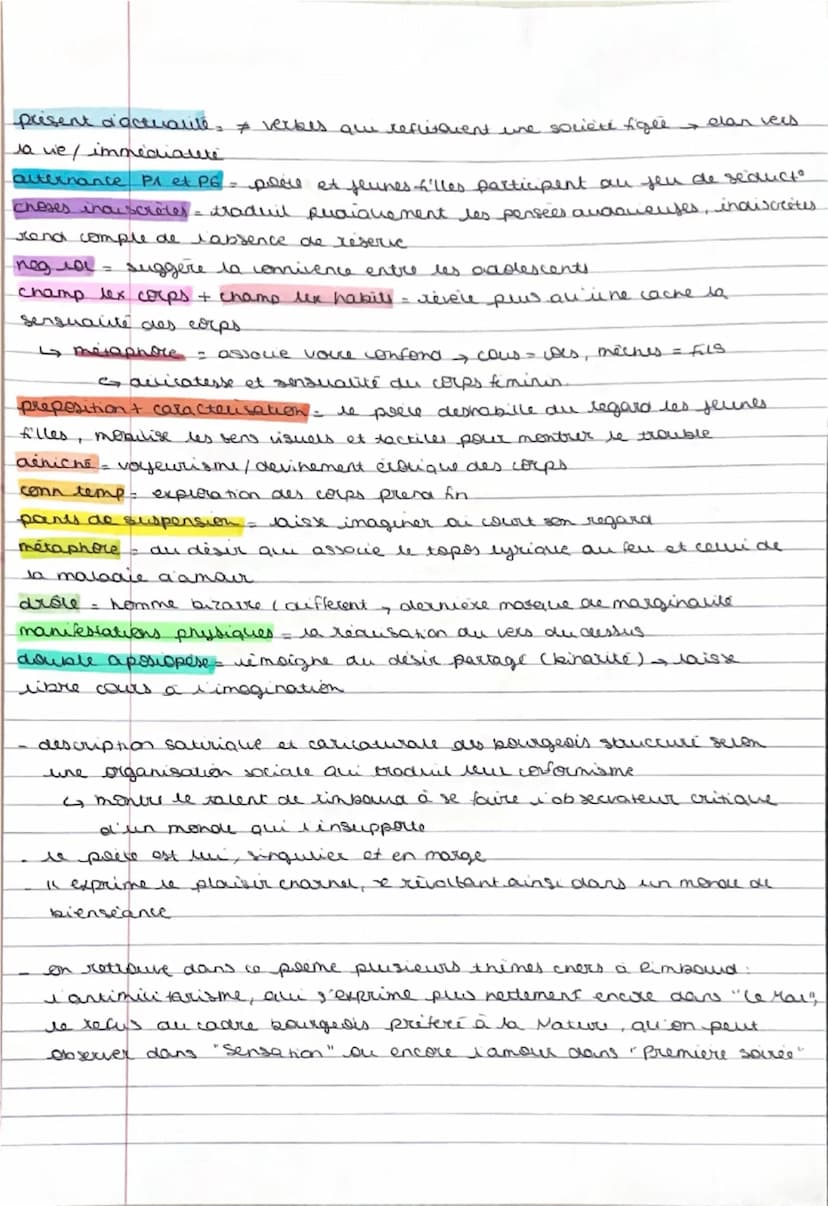 présent d'actualité = ≠ verbes qui reflétaient une société figée → élan vers
la vie / immédiateté
alternance P1 et P6 = poète et jeunes filles participent au jeu de séduct°
choses indiscrètes = traduit pudiquement les pensées audacieuses, indiscrètes
rend compte de l'absence de réserve
neg tot = suggère la connivence entre les adolescents
champ lex corps + champ lex habits = révèle plus qu'une cache la
sensualité des corps
↳ métaphore = associe voire confond → cous = cols, mèches = fils
↳ délicatesse et sensualité du corps féminin.
préposition + caractérisation = le poète déshabille du regard les jeunes
filles, mobilise les sens visuels et tactiles pour montrer le trouble
déniché = voyeurisme / devinement érotique des corps
conn temp = exploration des corps prend fin
points de suspension = laisse imaginer où court son regard
métaphore = du désir qui associe le topos lyrique du feu et celui de
la maladie d'amour
drôle = homme bizarre / différent, dernière marque de marginalité
manifestations physiques = la réalisation du vers du dessus
double aposiopèse = témoigne du désir partagé (binarité) → laisse
libre cours à l'imagination
- description satirique et caricaturale des bourgeois structuré selon
une organisation sociale qui traduit leur conformisme
↳ montre le talent de rimbaud à se faire l'observateur critique
d'un monde qui l'insupporte
- le poète est lui, singulier et en marge
- il exprime le plaisir charnel, se révoltant ainsi dans un monde de
bienséance
- on retrouve dans ce poème plusieurs thèmes chers à Rimbaud :
l'antimilitarisme, qui s'exprime plus nettement encore dans "Le Mal",
le refus du cadre bourgeois préféré à la Nature, qu'on peut
observer dans "Sensation" ou encore l'amour dans "Première soirée"